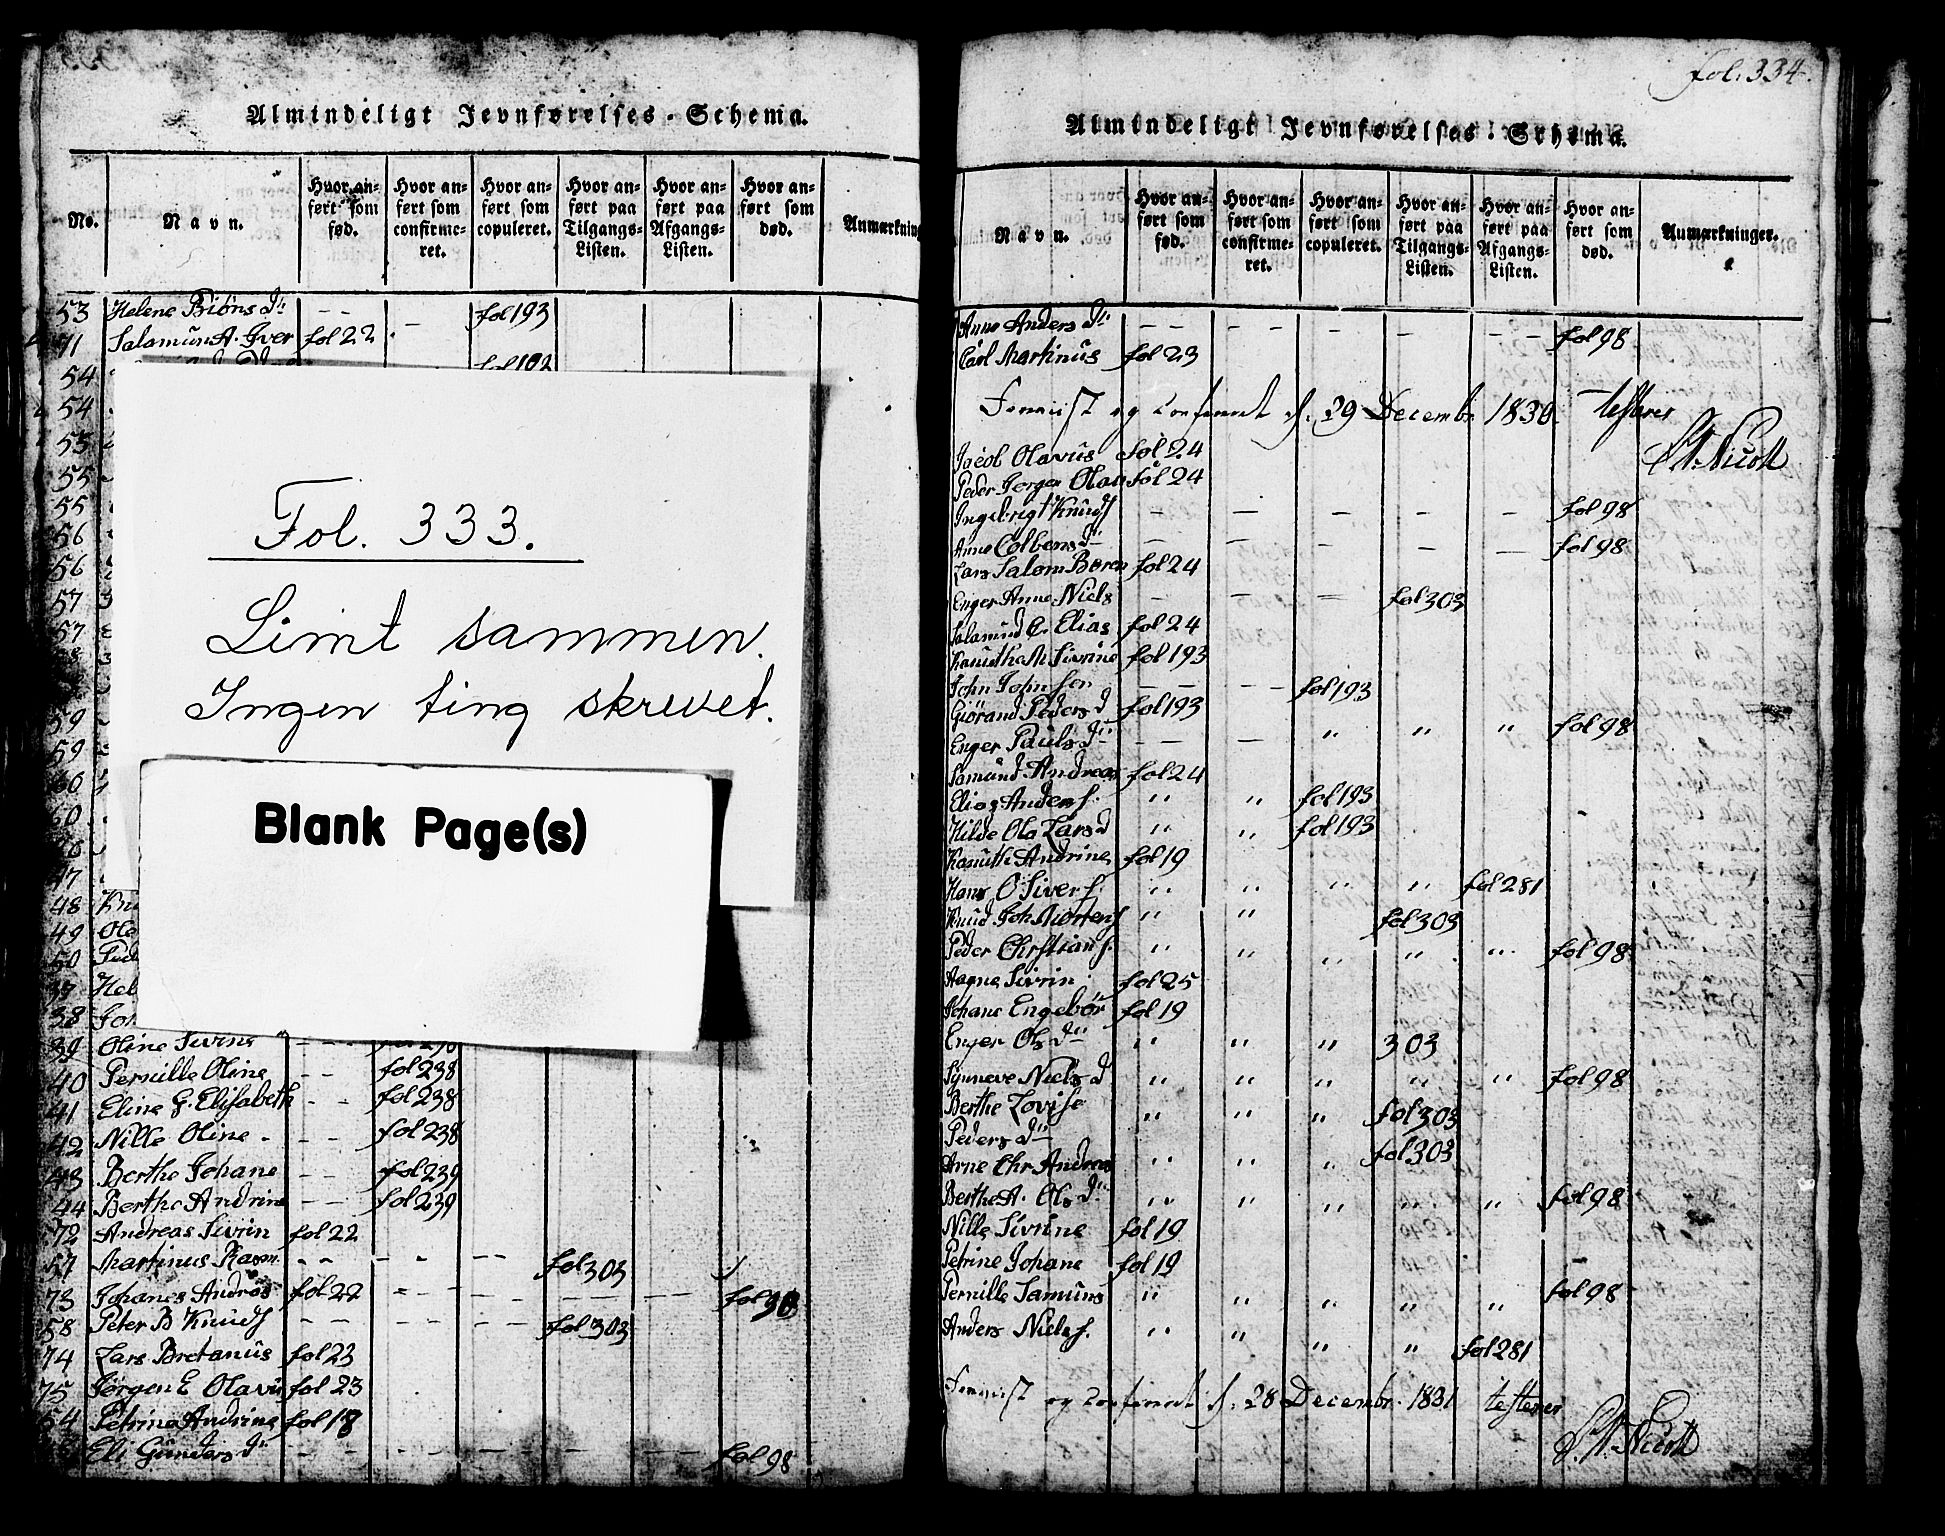 Almindeligt Jevnførelses-Schema.
No. Navn. Hvor anført som fød. Hvor anført som confirmeret. Hvor anført som copuleret. Hvor anført paa Tilgangs-Listen. Hvor anført paa Afgangs-Listen. Hvor anført som død. Anmærkning
53 Helene Biöns dr - - fol 193
71 Salamun A. Iver fol 22 - -
54 fol 192
54
55
55
55
56
56
57
57
59
59
60
Fol. 333.
Limt sammen.
Ingen ting skrevet.
Blank Page(s)
47
48 Kn
49 Ole
50 Ped
37 Hel
38 Joh
39 Oline Sivrine - - -
40 Pernille Oline - - fol 238
41 Eline G. Elisabeth - - fol 238
42 Nille Oline - - - fol 238
43 Berthe Johane - - fol 239
44 Berthe Andrine - - fol 239
72 Andreas Sivrin fol 22
57 Martinus Rasm - - - - - - fol 303
73 Johanes Andreas fol 22 - - - - - - - - fol 98
58 Peter B Knuds - - - - - - fol 303
74 Lars Bretanüs fol 23
75 Jörgen E Olavus fol 23
54 Petrine Andrine fol 18
Eli Günders dr - - - - - - fol 98
fol. 334.
Almindeligt Jevnførelses-Schema.
Navn. Hvor anført som fød. Hvor anført som confirmeret. Hvor anført som copuleret. Hvor anført paa Tilgangs-Listen. Hvor anført paa Afgangs-Listen. Hvor anført som død. Anmærkninger.
Anne Anders dr - - - - - - - - fol 98
Carl Martinüs fol 23
og Conferert d. 29 Decembr 1830. testerer
Jacob Olavüs fol 24
Peder Jørgen Olaus fol 24
Ingebrigt Knuds - - - - - fol 98
Anne Colbens dr - - - - - fol 98
Lars Salom Boren fol 24
Enger Anne Niels - - - fol 303
Salamund E. Elias fol 24
Kanuthe M Sivrine fol 193
John Johnsen - - - - fol 193
Giörand Peders d fol 193
Enger Pauls dr - - - " " " fol 98
Samund Andreas fol 24
Elias Anders. " " fol 193
Hilde Ola Lars d " " fol 193
Kanuthe Andrine fol 19
Hans O Sivers. " " " " fol 281
Knud Joh Mortens " " fol 303
Peder Christians. " " " " " fol 98
Aagne Sivrin fol 25
Johane Engebör fol 19
Enger Ols dr " " " 303
Synneve Niels d " " " " " fol 98
Berthe Lovise
Peders dr " " " fol 303
Arne Chr Andreas " " " fol 303
Berthe A. Ols dr " " " " " fol 98
Nille Sivrine fol 19
Petrine Johane fol 19
Pernille Samüns " " " " " fol 98
Anders Niels. " " " " fol 281
og Conferert d. 28 Decembr. 1831 testerer